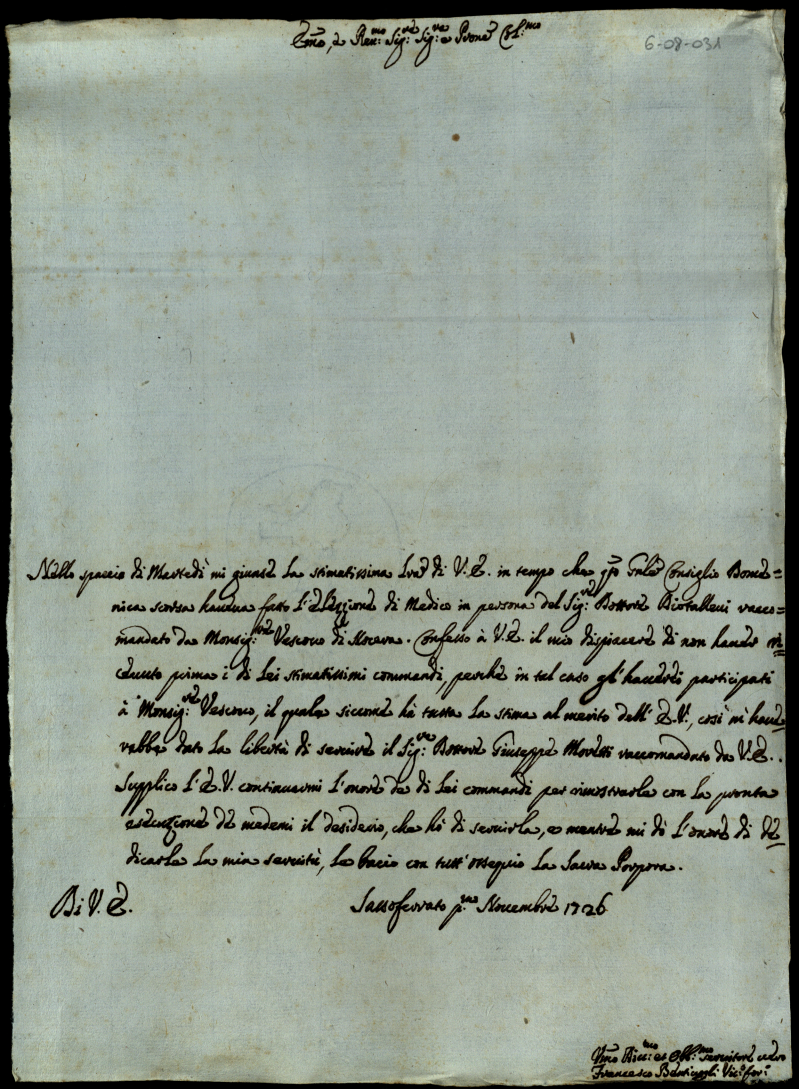 Em̃o, e Reu:mo Sig:re Sig:re e Prone Col:mo
6-08-031
Nello spaccio di Martedì mi giunse la stimatissima lr̃a di V.E. in tempo che Gñle Consiglio Dome=
nica scorsa haueua fatto l'Elezzione di Medico in persona del Sig:re Dottore racco=
mandato da Monsig:re Vescouo di Nocera. Confesso à V.E. il mio dispiacere di non hauer ri=
ceuuto prima i di Lei stimatissimi commandi, perchè in tal caso gl'hauerei participati
à Monsig:re Vescouo, il quale siccome hà tutta la stima al merito dell'E.V., così m'haue=
rebbe dato la libertà di seruire il Sig:re Dottore Giuseppe Moretti raccomandato da V.E..
Supplico l'E.V. continuarmi l'onore de di Lei commandi per rimostrarle con la pronta
esecuzione de medemi il desiderio, che hò di seruirla, e mentre mi dò l'onore di de=
dicarle la mia seruitù, le bacio con tutt'ossequio la Sacra Porpora.
Di V.E. Sassoferrato p:mo Nouembre 1726
Vm̃o Diu:mo et Obl:mo Seruitore uero
Francesco Vic:o for:o